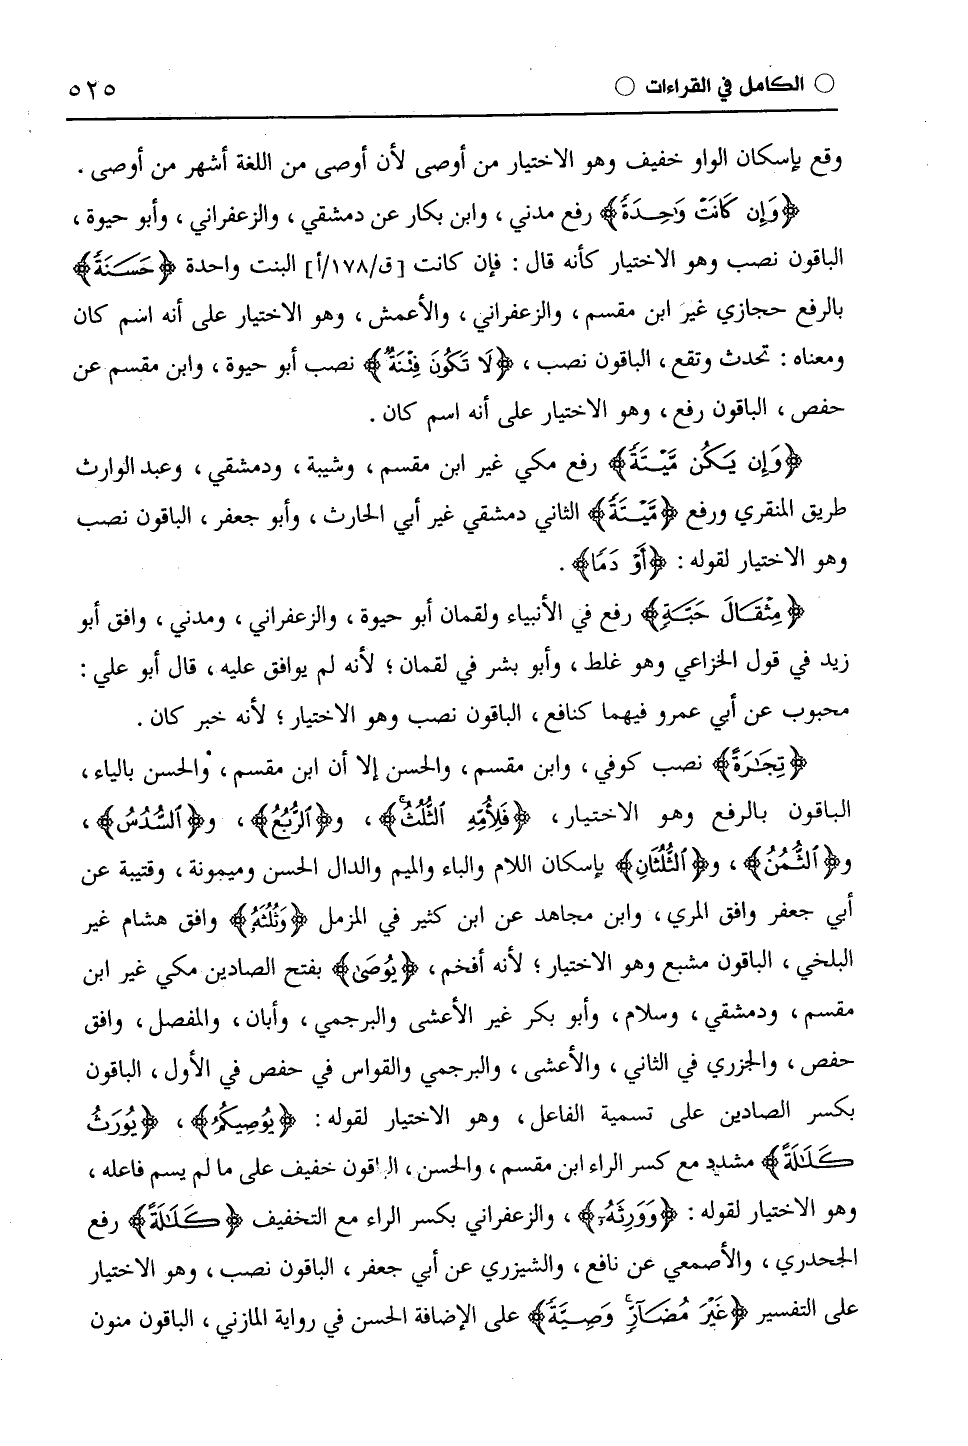 ○ الكامل في القراءات ○
٥٢٥
وقع بإسكان الواو خفيف وهو الاختيار من أوصى لأن أوصى من اللغة أشهر من أوصى .
﴿وَإِن كَانَتْ وَٰحِدَةٌ﴾ رفع مدني ، وابن بكار عن دمشقي ، والزعفراني ، وأبو حيوة ،
الباقون نصب وهو الاختيار كأنه قال : فإن كانت [ق/١٧٨/أ] البنت واحدة ﴿حَسَنَةً﴾
بالرفع حجازي غير ابن مقسم ، والزعفراني ، والأعمش ، وهو الاختيار على أنه اسم كان
ومعناه : تحدث وتقع ، الباقون نصب ، ﴿لَا تَكُونَ فِتْنَةٌ﴾ نصب أبو حيوة ، وابن مقسم عن
حفص ، الباقون رفع ، وهو الاختيار على أنه اسم كان .
﴿وَإِن يَكُن مَّيْتَةً﴾ رفع مكي غير ابن مقسم ، وشيبة ، ودمشقي ، وعبد الوارث
طريق المنقري ورفع ﴿مَّيْتَةً﴾ الثاني دمشقي غير أبي الحارث ، وأبو جعفر ، الباقون نصب
وهو الاختيار لقوله : ﴿أَوْ دَمًا﴾ .
﴿مِثْقَالَ حَبَّةٍ﴾ رفع في الأنبياء ولقمان أبو حيوة ، والزعفراني ، ومدني ، وافق أبو
زيد في قول الخزاعي وهو غلط ، وأبو بشر في لقمان ؛ لأنه لم يوافق عليه ، قال أبو علي :
محبوب عن أبي عمرو فيهما كنافع ، الباقون نصب وهو الاختيار ؛ لأنه خبر كان .
﴿تِجَٰرَةً﴾ نصب كوفي ، وابن مقسم ، والحسن إلا أن ابن مقسم ، والحسن بالياء ،
الباقون بالرفع وهو الاختيار ، ﴿فَلِأُمِّهِ ٱلثُّلُثُ﴾ ، و﴿ٱلرُّبُعُ﴾ ، و﴿ٱلسُّدُسُ﴾ ،
و﴿ٱلثُّمُنُ﴾ ، و﴿ٱلثُّلُثَانِ﴾ بإسكان اللام والباء والميم والدال الحسن وميمونة ، وقتيبة عن
أبي جعفر وافق المري ، وابن مجاهد عن ابن كثير في المزمل ﴿وَثُلُثَهُۥ﴾ وافق هشام غير
البلخي ، الباقون مشبع وهو الاختيار ؛ لأنه أفخم ، ﴿يُوصَىٰ﴾ بفتح الصادين مكي غير ابن
مقسم ، ودمشقي ، وسلام ، وأبو بكر غير الأعشى والبرجمي ، وأبان ، والمفصل ، وافق
حفص ، والجزري في الثاني ، والأعشى ، والبرجمي والقواس في حفص في الأول ، الباقون
بكسر الصادين على تسمية الفاعل ، وهو الاختيار لقوله : ﴿يُوصِيكُمُ﴾ ، ﴿يُورَثُ
كَلَٰلَةً﴾ مشدد مع كسر الراء ابن مقسم ، والحسن ، الباقون خفيف على ما لم يسم فاعله ،
وهو الاختيار لقوله : ﴿وَوَرِثَهُۥ﴾ ، والزعفراني بكسر الراء مع التخفيف ﴿كَلَٰلَةً﴾ رفع
الجحدري ، والأصمعي عن نافع ، والشيزري عن أبي جعفر ، الباقون نصب ، وهو الاختيار
على التفسير ﴿غَيْرَ مُضَآرٍّ وَصِيَّةً﴾ على الإضافة الحسن في رواية المازني ، الباقون منون